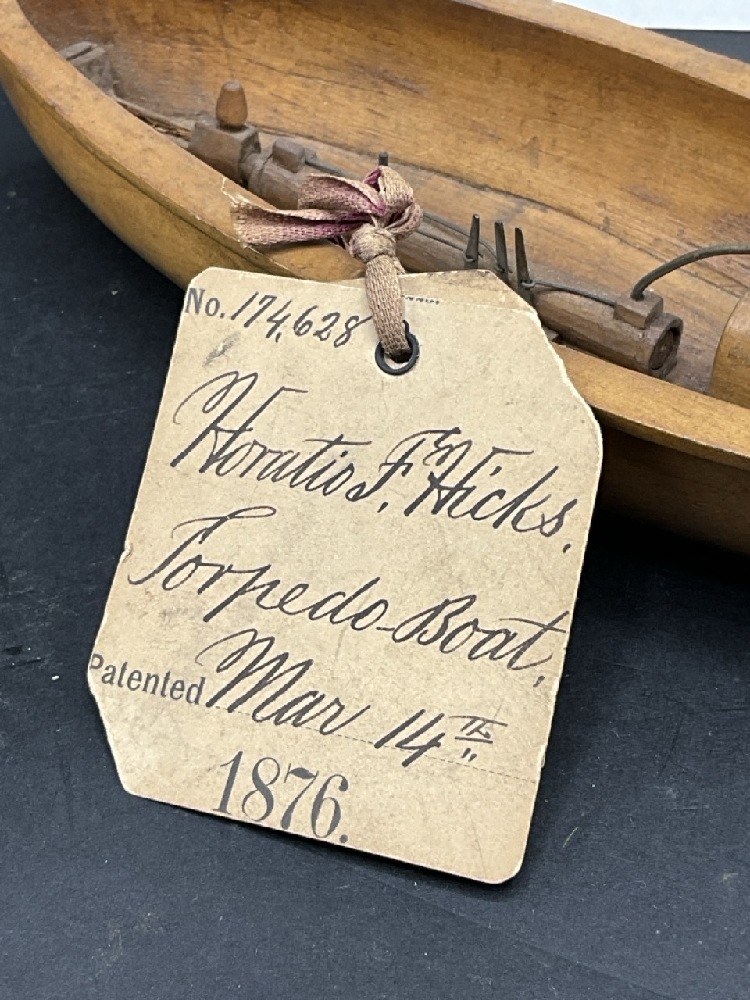 No. 174,628
Horatio F. Hicks.
Torpedo-Boat,
Patented Mar 14th
1876.